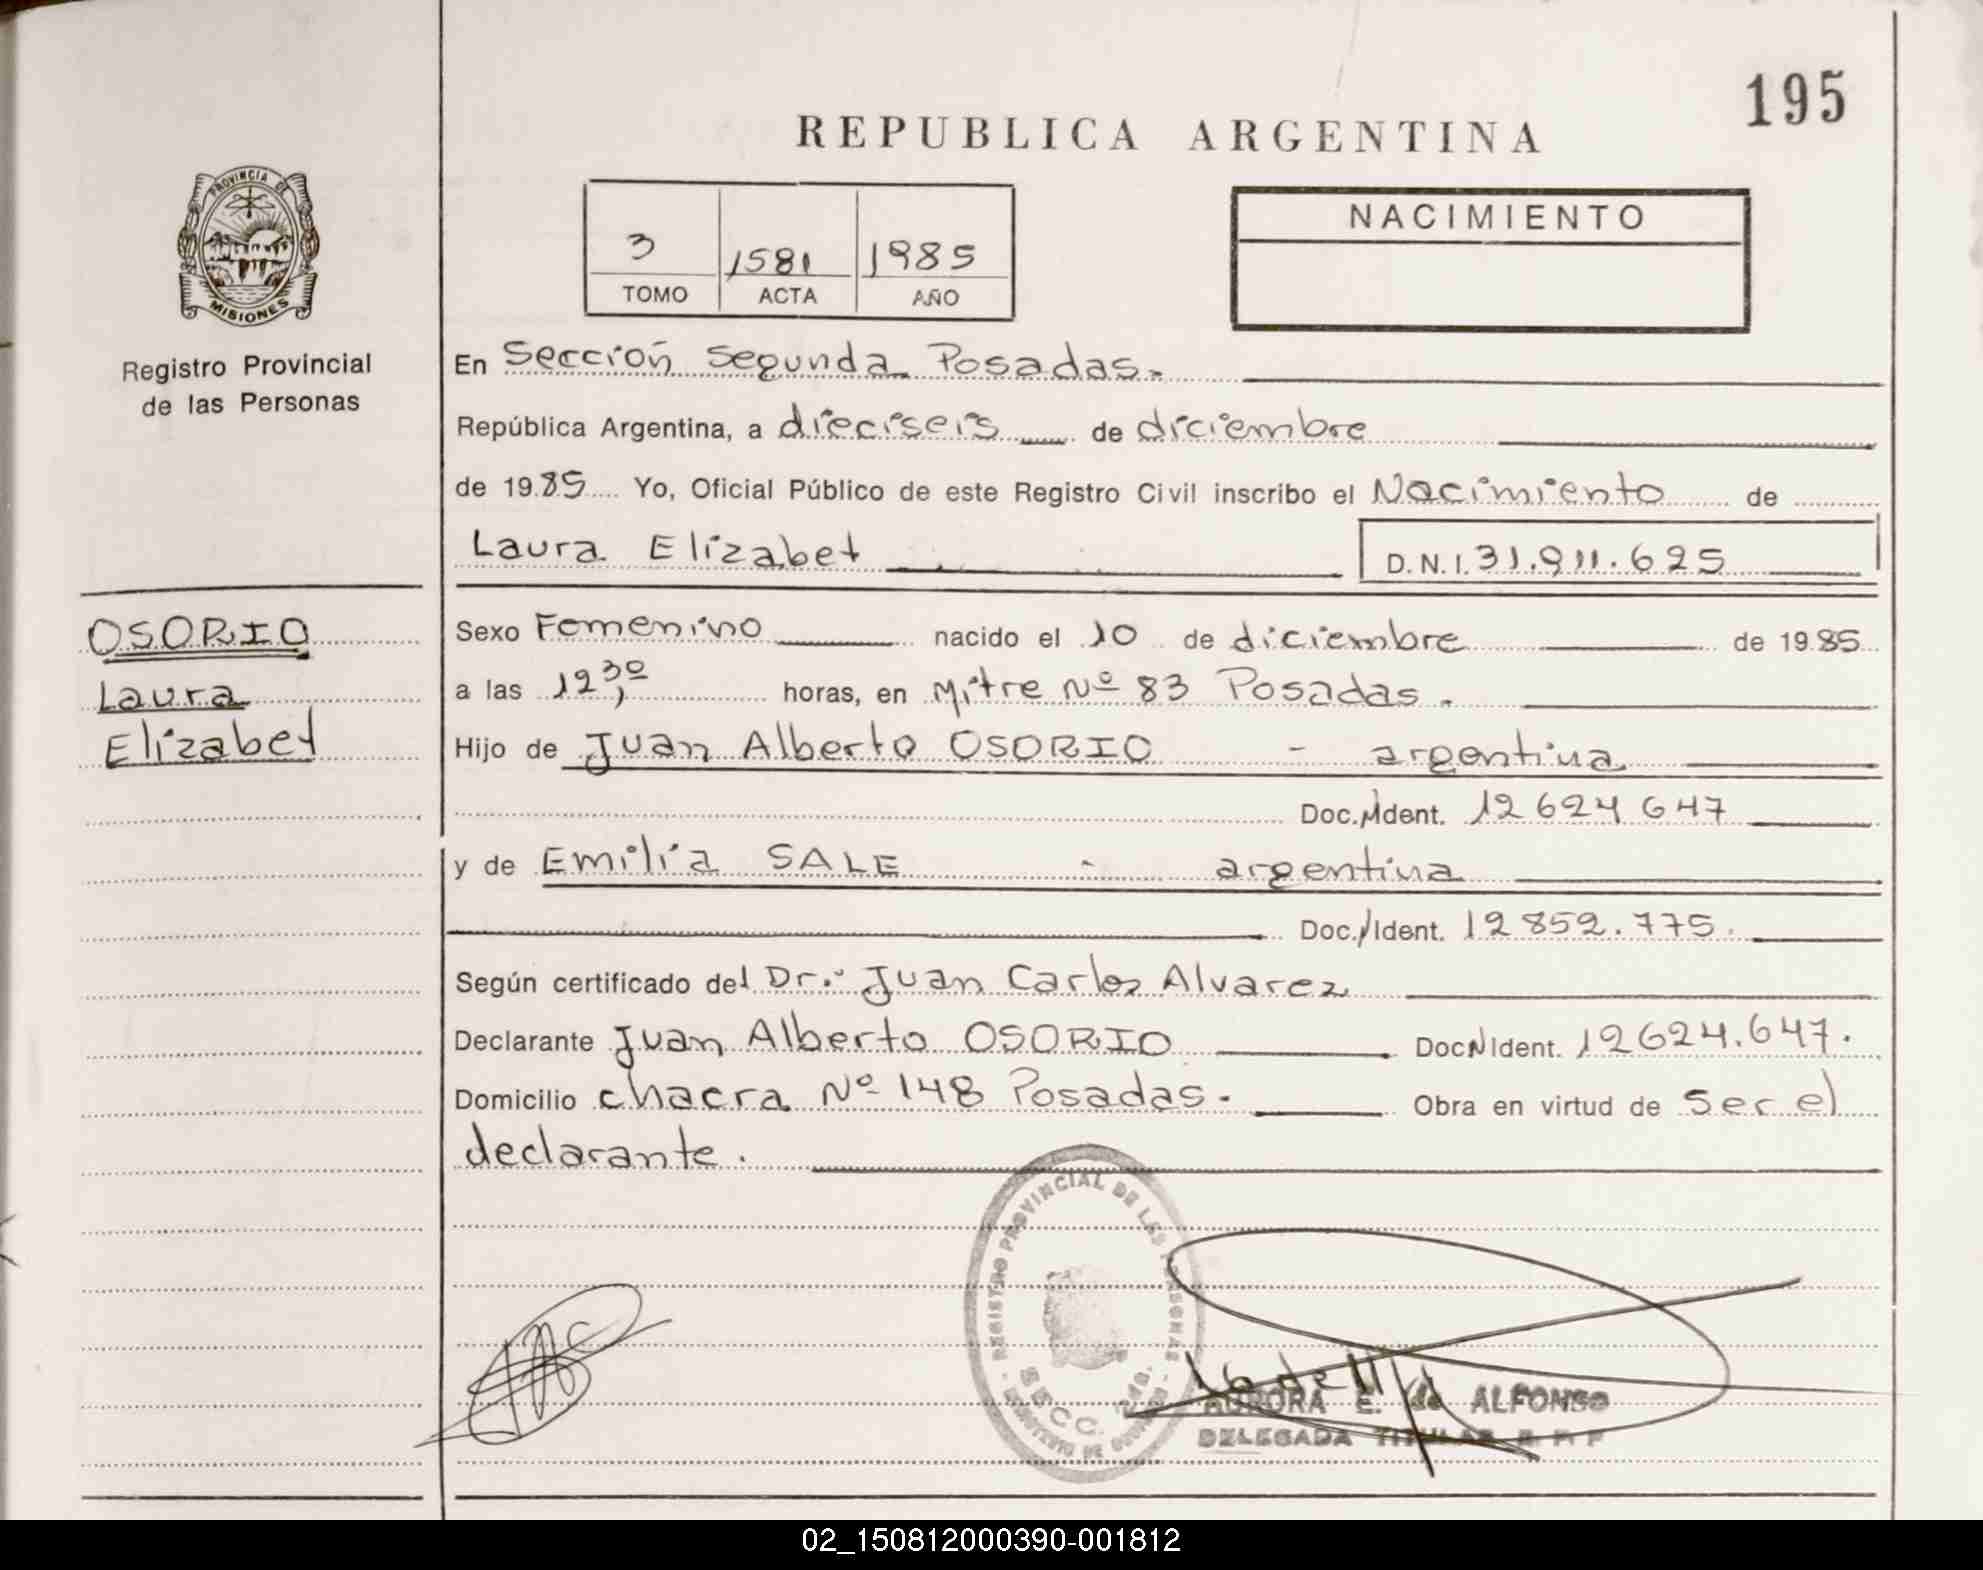 195
REPUBLICA ARGENTINA
PROVINCIA DE
MISIONES
Registro Provincial
de las Personas
3 1581 1985
TOMO ACTA AÑO
NACIMIENTO
En Sección Segunda Posadas.
República Argentina, a dieciseis de diciembre
de 1985 Yo, Oficial Público de este Registro Civil inscribo el Nacimiento de
Laura Elizabet D.N.I. 31.911.625
OSORIO
Laura
Elizabet
Sexo Femenino nacido el 10 de diciembre de 1985
a las 12,30 horas, en Mitre Nº 83 Posadas.
Hijo de Juan Alberto OSORIO - argentina
Doc. Ident. 12 624 647
y de Emilia SALE - argentina
Doc. Ident. 12 852.775.
Según certificado del Dr. Juan Carlos Alvarez
Declarante Juan Alberto OSORIO Doc N Ident. 12624.647.
Domicilio chacra Nº 148 Posadas. Obra en virtud de ser el
declarante.
REGISTRO PROVINCIAL DE LAS PERSONAS
SECC. 2da.
AURORA E. de ALFONSO
DELEGADA TITULAR R. P. P
02_150812000390-001812